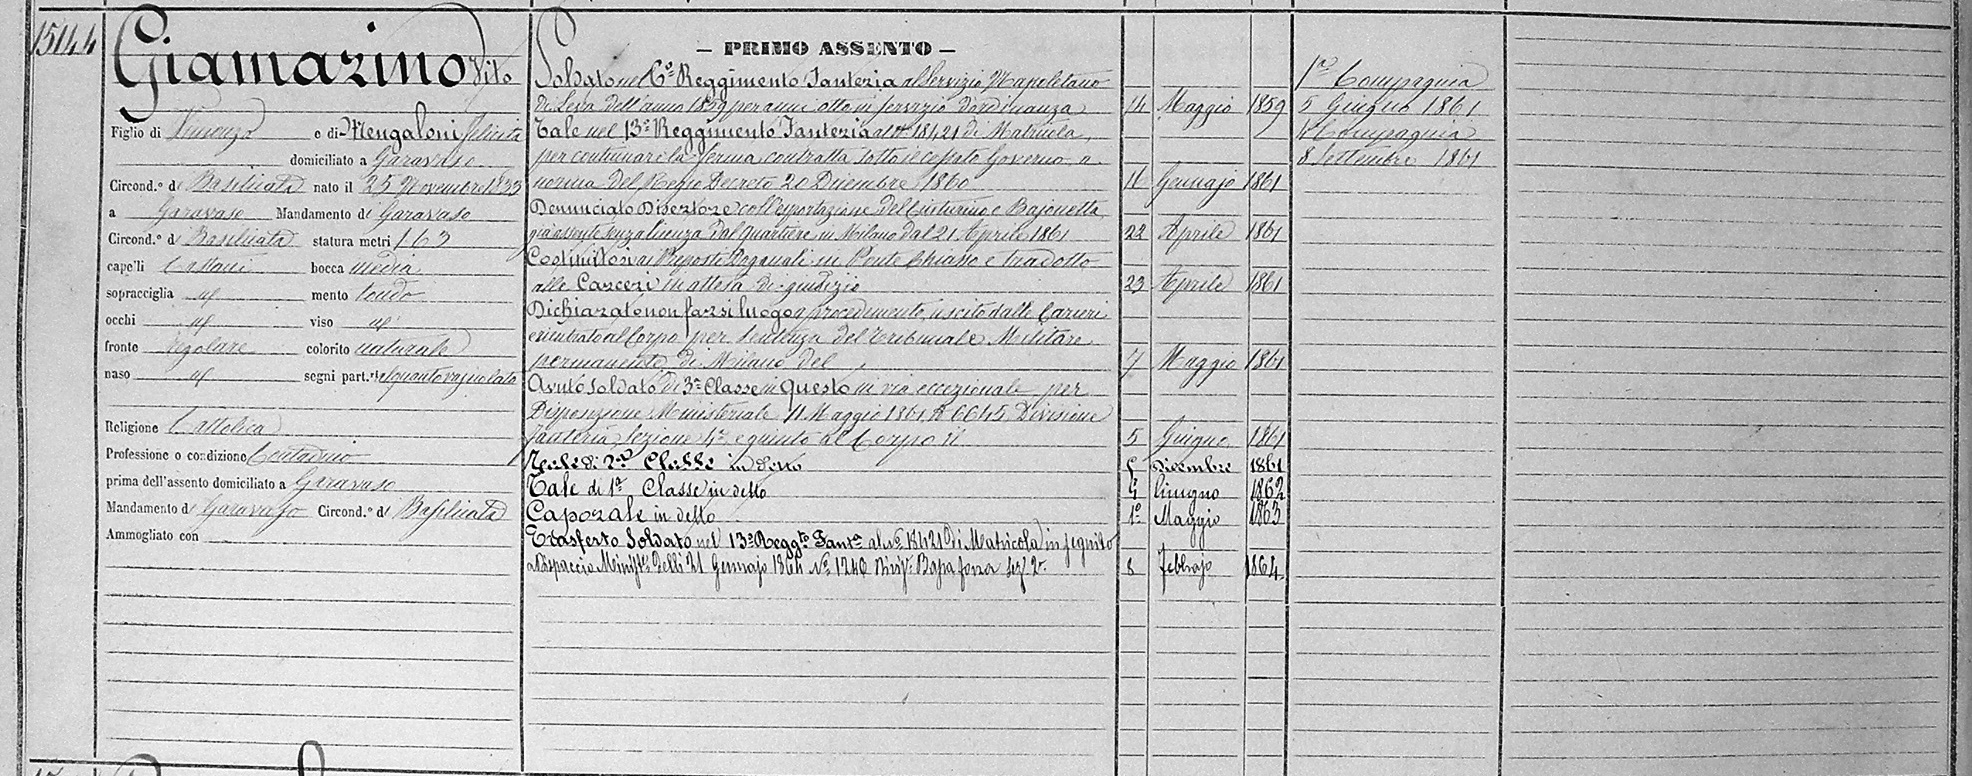 1544
Giamazino Vito
Figlio di Vincenzo e di Mengaloni Felicita
domiciliato a Garavaso
Circond.º di Basilicata nato il 25 Novembre 1833
a Garavaso Mandamento di Garavaso
Circond.º di Basilicata statura metri 1 63
capelli Castani bocca media
sopracciglia id mento tondo
occhi id viso id
fronte regolare colorito naturale
naso id segni part.ri alquanto vajuolato
Religione Cattolica
Professione o condizione Contadino
prima dell'assento domiciliato a Garavaso
Mandamento di Garavaso Circond.º di Basilicata
Ammogliato con
— PRIMO ASSENTO —
Soldato nel 6º Reggimento Fanteria al Servizio Napoletano
di Leva dell'anno 1859 per anni otto in servizio d'ordinanza 14 Maggio 1859
Tale nel 13º Reggimento Fanteria al Nº 18421 di Matricola,
per continuare la ferma contratta sotto il cessato Governo a
norma del Regio Decreto 20 Dicembre 1860 11 Gennajo 1861
Denunciato Disertore coll'esportazione del Cinturino e Bajonetta
già assente senza licenza dal quartiere in Milano dal 21 Aprile 1861 22 Aprile 1861
Costituitosi ai Preposti Doganali in Ponte Chiasso e tradotto
alle Carceri in attesa di giudizio 23 Aprile 1861
Dichiarato non farsi luogo a procedimento, uscito dalle Carceri
e rientrato al Corpo per sentenza del Tribunale Militare
permanente di Milano del 7 Maggio 1861
Avuto Soldato di 3ª Classe in Questo in via eccezionale per
Disposizione Ministeriale 11 Maggio 1861 Nº 6645 Divisione
Fanteria, Sezione 4ª e giunto al Corpo il 5 Giugno 1861
Tale di 2ª Classe in detto Dicembre 1861
Tale di 1ª Classe in detto Giugno 1862
Caporale in detto 1º Maggio 1863
Trasferto Soldato nel 13º Reggto Fantª al Nº 18421 di Matricola in seguito
a Dispaccio Ministle delli 21 Gennajo 1864 Nº 1240 Divis. Bassa forza Sez 2ª 8 Febbrajo 1864
1ª Compagnia
5 Giugno 1861
Compagnia
8 Settembre 1861